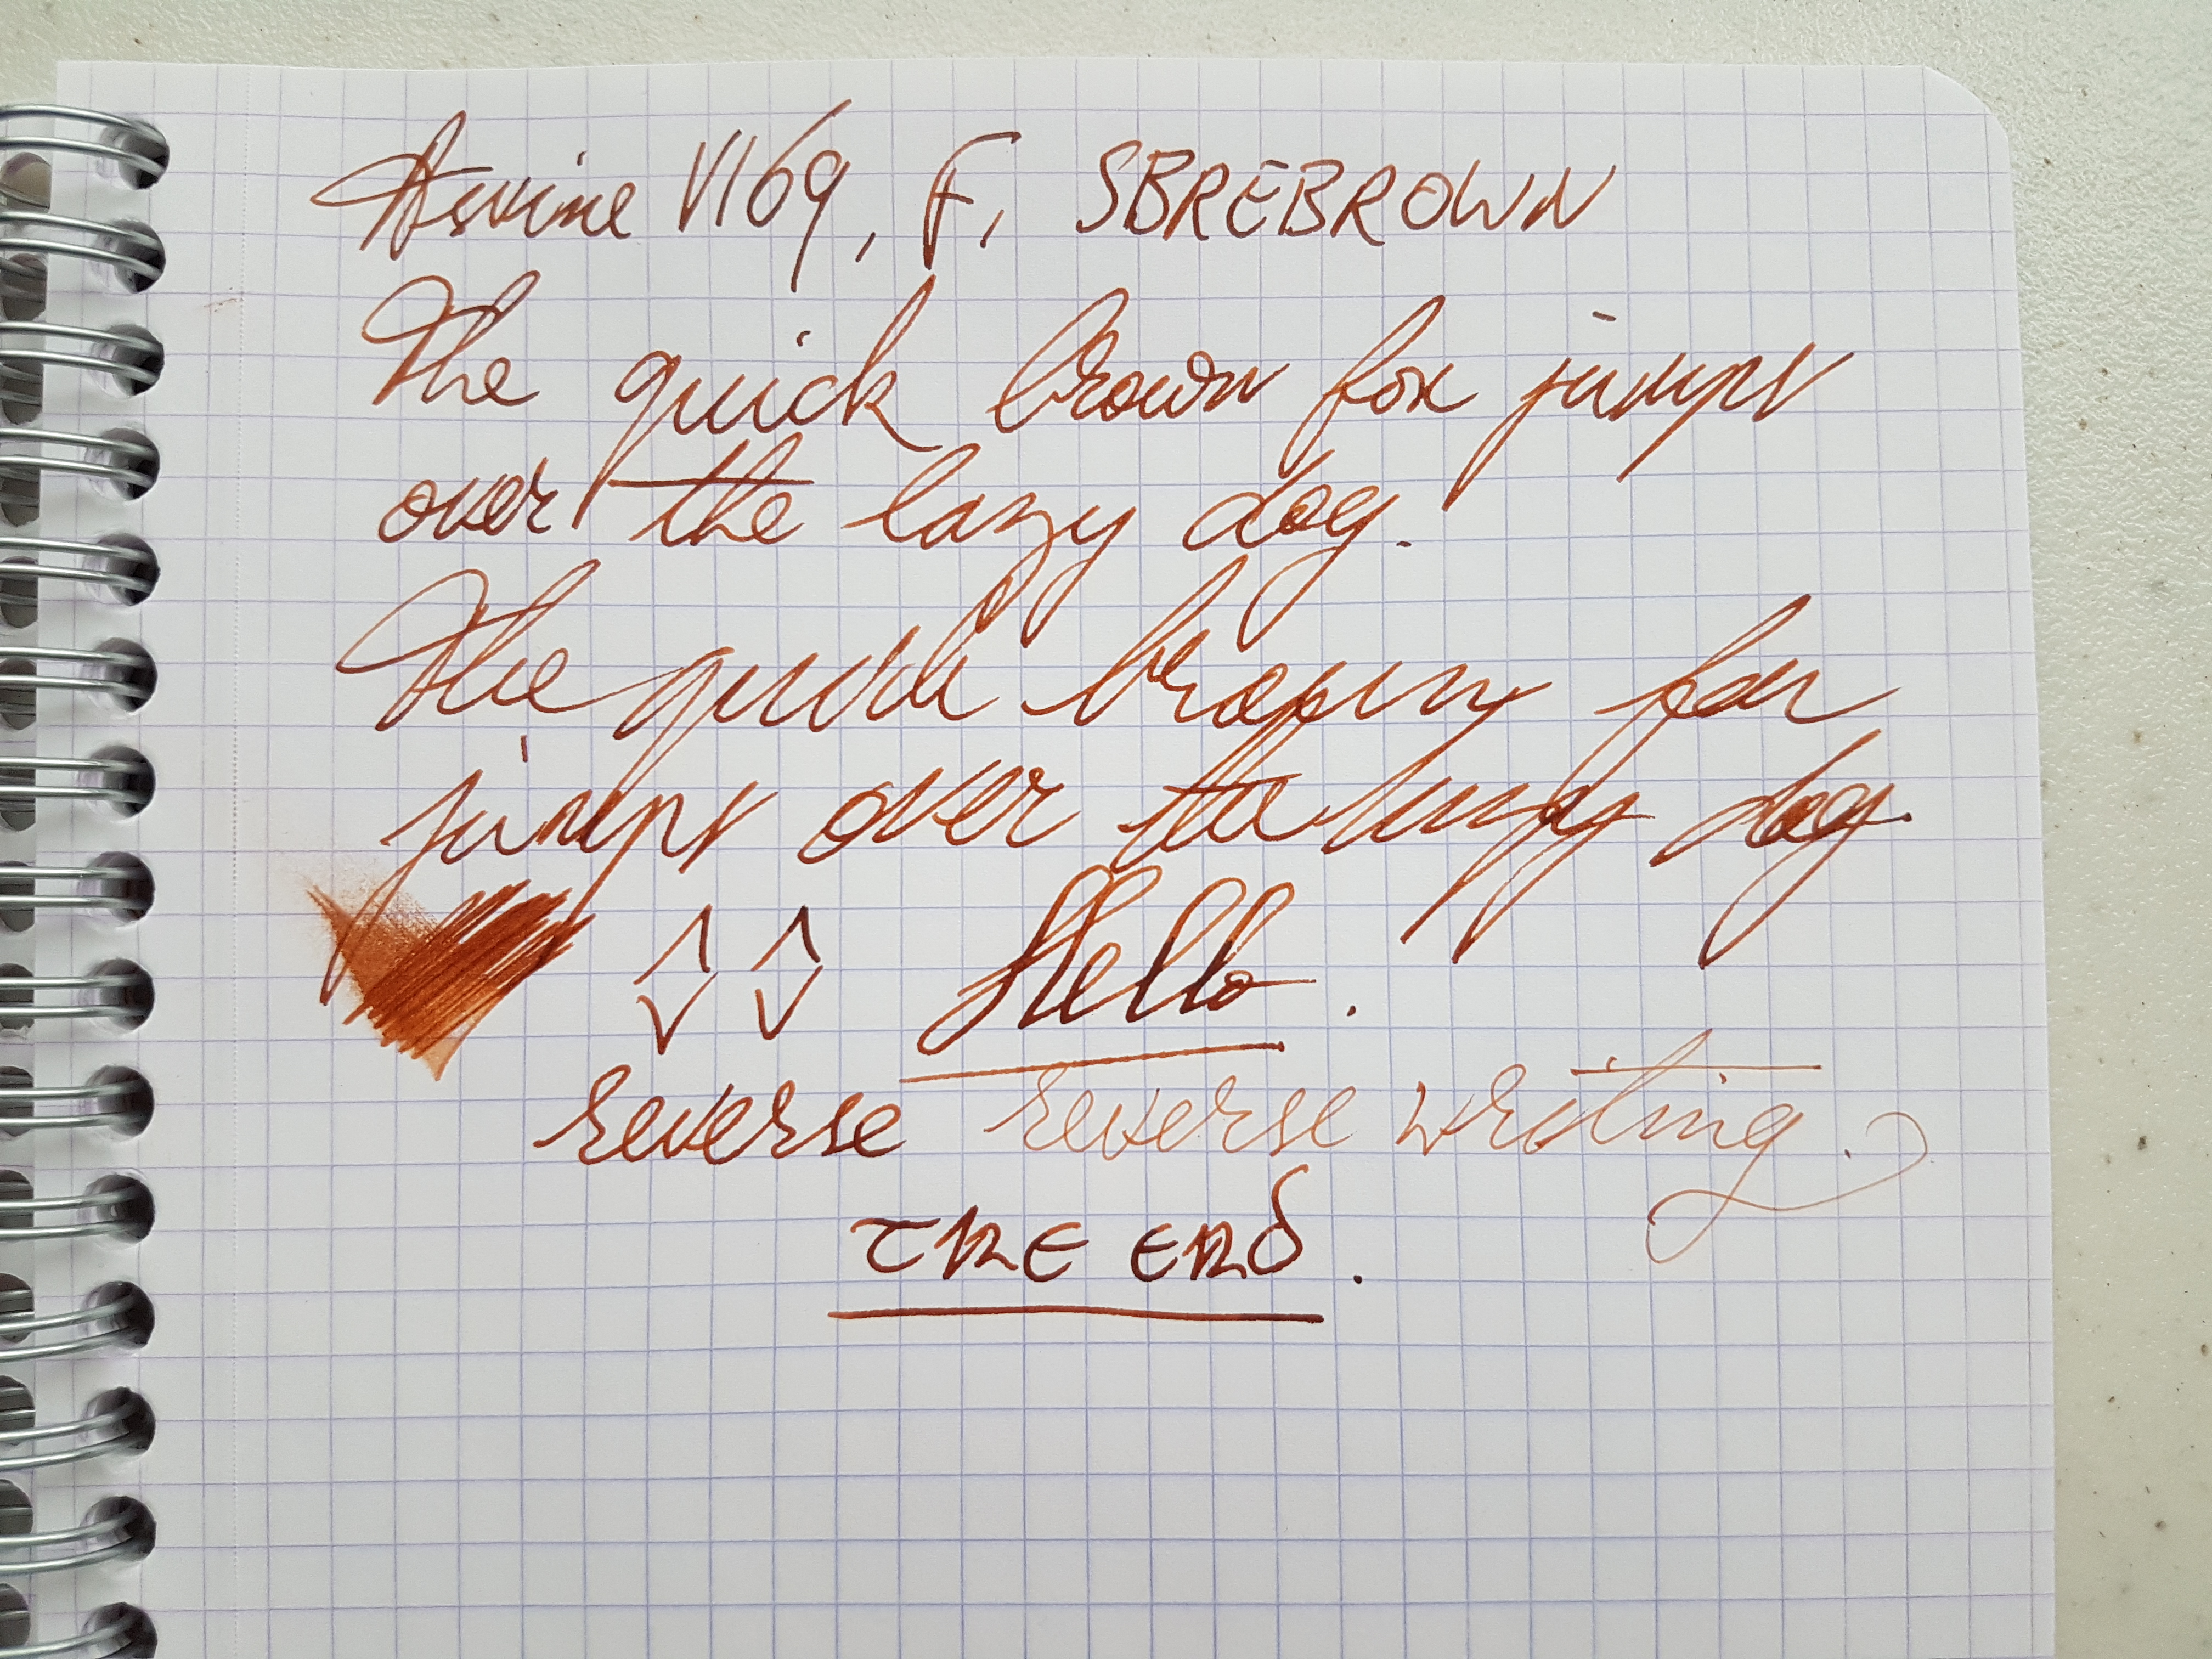 Asvine V169, F, SBREBROWN
The quick brown fox jumps
over the lazy dog.
The quick brown fox
jumps over the lazy dog.
Hello.
reverse reverse writing.
THE END.